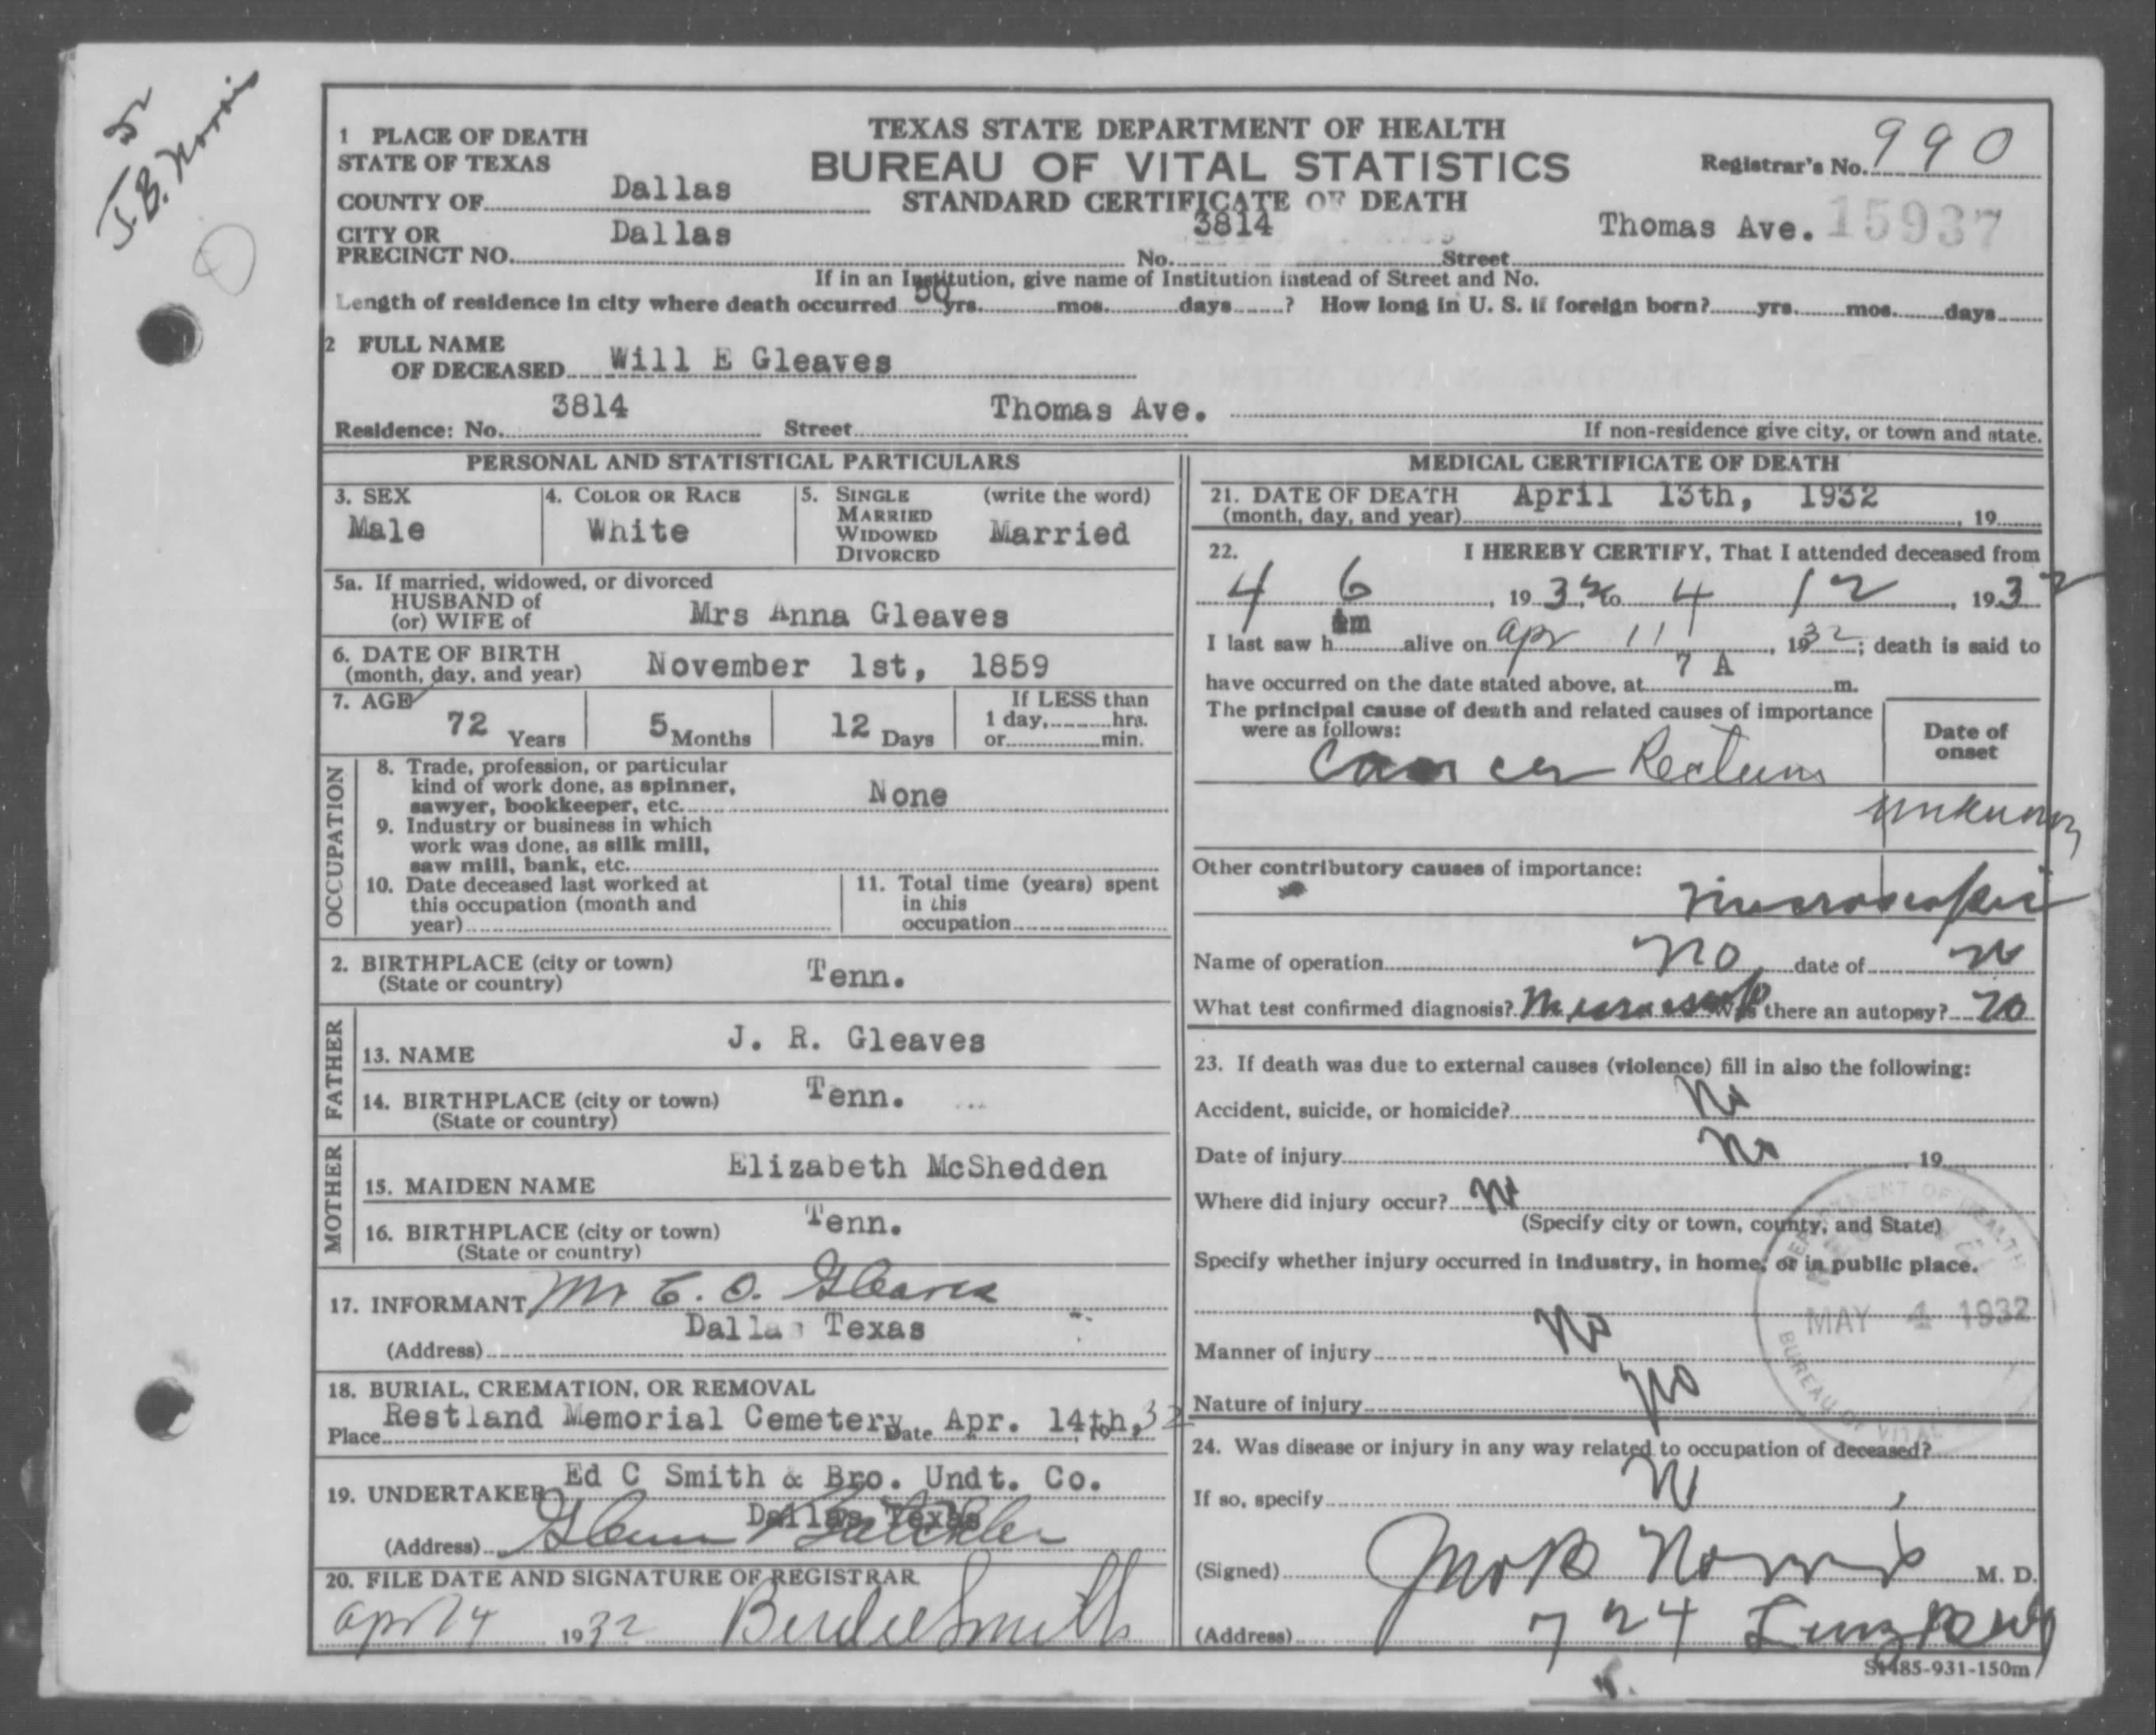 J. B. Norris
TEXAS STATE DEPARTMENT OF HEALTH
BUREAU OF VITAL STATISTICS
STANDARD CERTIFICATE OF DEATH
Registrar's No. 990
15937
1 PLACE OF DEATH
STATE OF TEXAS
COUNTY OF Dallas
CITY OR
PRECINCT NO. Dallas No. 3814 Street Thomas Ave.
If in an Institution, give name of Institution instead of Street and No.
Length of residence in city where death occurred 50 yrs. mos. days ? How long in U. S. if foreign born? yrs. mos. days
2 FULL NAME
OF DECEASED Will E Gleaves
Residence: No. 3814 Street Thomas Ave.
If non-residence give city, or town and state.
PERSONAL AND STATISTICAL PARTICULARS
3. SEX
Male
4. COLOR OR RACE
White
5. SINGLE
MARRIED
WIDOWED
DIVORCED
(write the word)
Married
5a. If married, widowed, or divorced
HUSBAND of
(or) WIFE of
Mrs Anna Gleaves
6. DATE OF BIRTH
(month, day, and year)
November 1st, 1859
7. AGE
72 Years
5 Months
12 Days
If LESS than
1 day, hrs.
or min.
OCCUPATION
8. Trade, profession, or particular
kind of work done, as spinner,
sawyer, bookkeeper, etc. None
9. Industry or business in which
work was done, as silk mill,
saw mill, bank, etc.
10. Date deceased last worked at
this occupation (month and
year)
11. Total time (years) spent
in this
occupation
2. BIRTHPLACE (city or town)
(State or country)
Tenn.
FATHER
13. NAME J. R. Gleaves
14. BIRTHPLACE (city or town)
(State or country)
Tenn.
MOTHER
15. MAIDEN NAME Elizabeth McShedden
16. BIRTHPLACE (city or town)
(State or country)
Tenn.
17. INFORMANT Mr C. O. Gleaves
(Address) Dallas Texas
18. BURIAL, CREMATION, OR REMOVAL
Place Restland Memorial Cemetery Date Apr. 14th, 32
19. UNDERTAKER Ed C Smith & Bro. Undt. Co.
Dallas Texas
(Address) Glenn
20. FILE DATE AND SIGNATURE OF REGISTRAR
Apr 14 1932 Birdie Smith
MEDICAL CERTIFICATE OF DEATH
21. DATE OF DEATH
(month, day, and year) April 13th, 1932 , 19
22. I HEREBY CERTIFY, That I attended deceased from
4 6 , 1932, to 4 12 , 1932
I last saw him alive on Apr 11 , 1932; death is said to
have occurred on the date stated above, at 7 A m.
The principal cause of death and related causes of importance
were as follows:
Date of
onset
Cancer Rectum
unknown
Other contributory causes of importance:
microscopic
Name of operation no date of no
What test confirmed diagnosis? Microscop Was there an autopsy? no
23. If death was due to external causes (violence) fill in also the following:
Accident, suicide, or homicide? No
Date of injury No , 19
Where did injury occur? No
(Specify city or town, county, and State)
Specify whether injury occurred in industry, in home, or in public place.
Manner of injury No
Nature of injury No
24. Was disease or injury in any way related to occupation of deceased?
If so, specify N
(Signed) Jno B Norris M. D.
(Address) 724
DEPARTMENT OF HEALTH
MAY 4 1932
BUREAU OF VITAL
S1485-931-150m